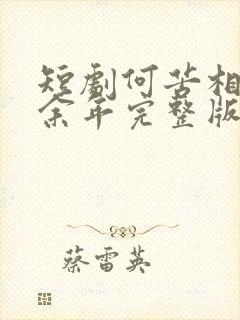 短剧何苦相
余年完整版
蔡雷英